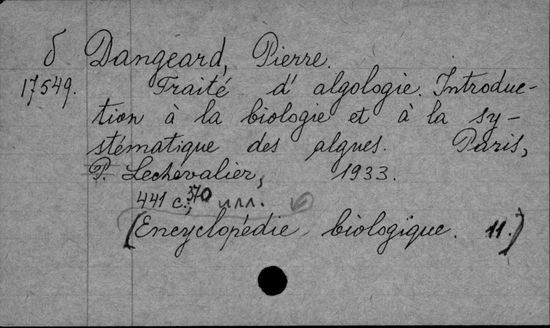 δ Dangeard, Pierre.
17549. Traité d'algologie. Introduc-
tion à la biologie et à la sy-
stématique des algues. Paris,
P. Lechevalier, 1933.
441 с.; 370 илл.
(Encyclopédie biologique. 11.)